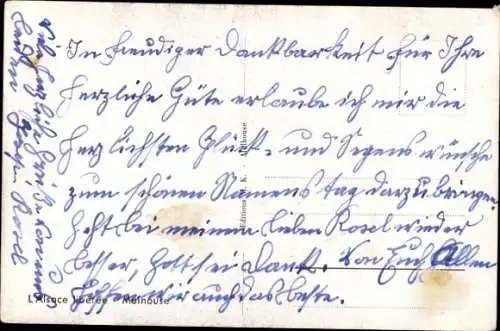 In freudiger Dankbarkeit für Ihre
herzliche Güte erlaube ich mir die
herzlichsten Glück- und Segenswünsche
zum schönen Namenstag darzubringen.
Geht bei meinem lieben Rosel wieder
besser, Gott sei Dank. Von Euch Allen
hoffen wir auch das beste.
Viele herzliche Grüße
Rosel
Editions M. K. Melhouse
L'Alsace libérée Melhouse